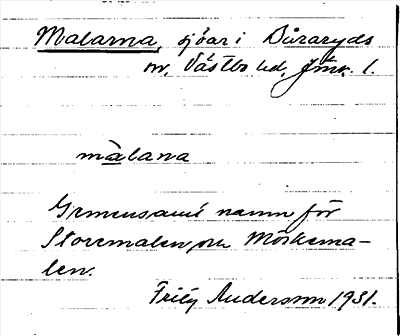 Malarna, sjöar i Båraryds
sn, Västbo hd, Jmk. l.
màlana
Gemensamt namn för
Storemalen och Mörkema-
len.
Frity Andersson 1931.